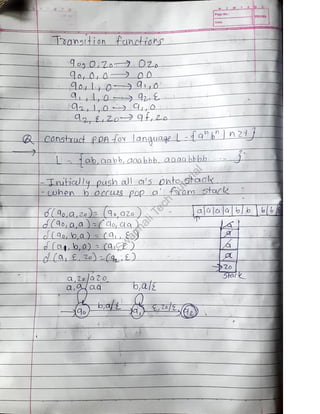 Transition functions
q0, 0, z0 → 0z0
q0, 0, 0 → 00
q0, 1, 0 → q1, 0
q1, 1, 0 → q2, ε
q2, 1, 0 → q1, 0
q2, ε, z0 → qf, z0
Q construct PDA for language L - {aⁿbⁿ | n≥1}
→ L = {ab, aabb, aaabbb, aaaabbbb ...}
- Initially push all a's onto stack
- when b occurs pop 'a' from stack
δ(q0, a, z0) = (q0, az0)
δ(q0, a, a) = (q0, aa)
δ(q0, b, a) = (q1, ε)
δ(q1, b, a) = (q1, ε)
δ(q1, ε, z0) = (q2, ε)
a a a b b b b
a
a
a
a
z0
stack
a, z0/az0
a, a/aa
b, a/ε
b, a/ε
ε, z0/ε
q0
q1
q2